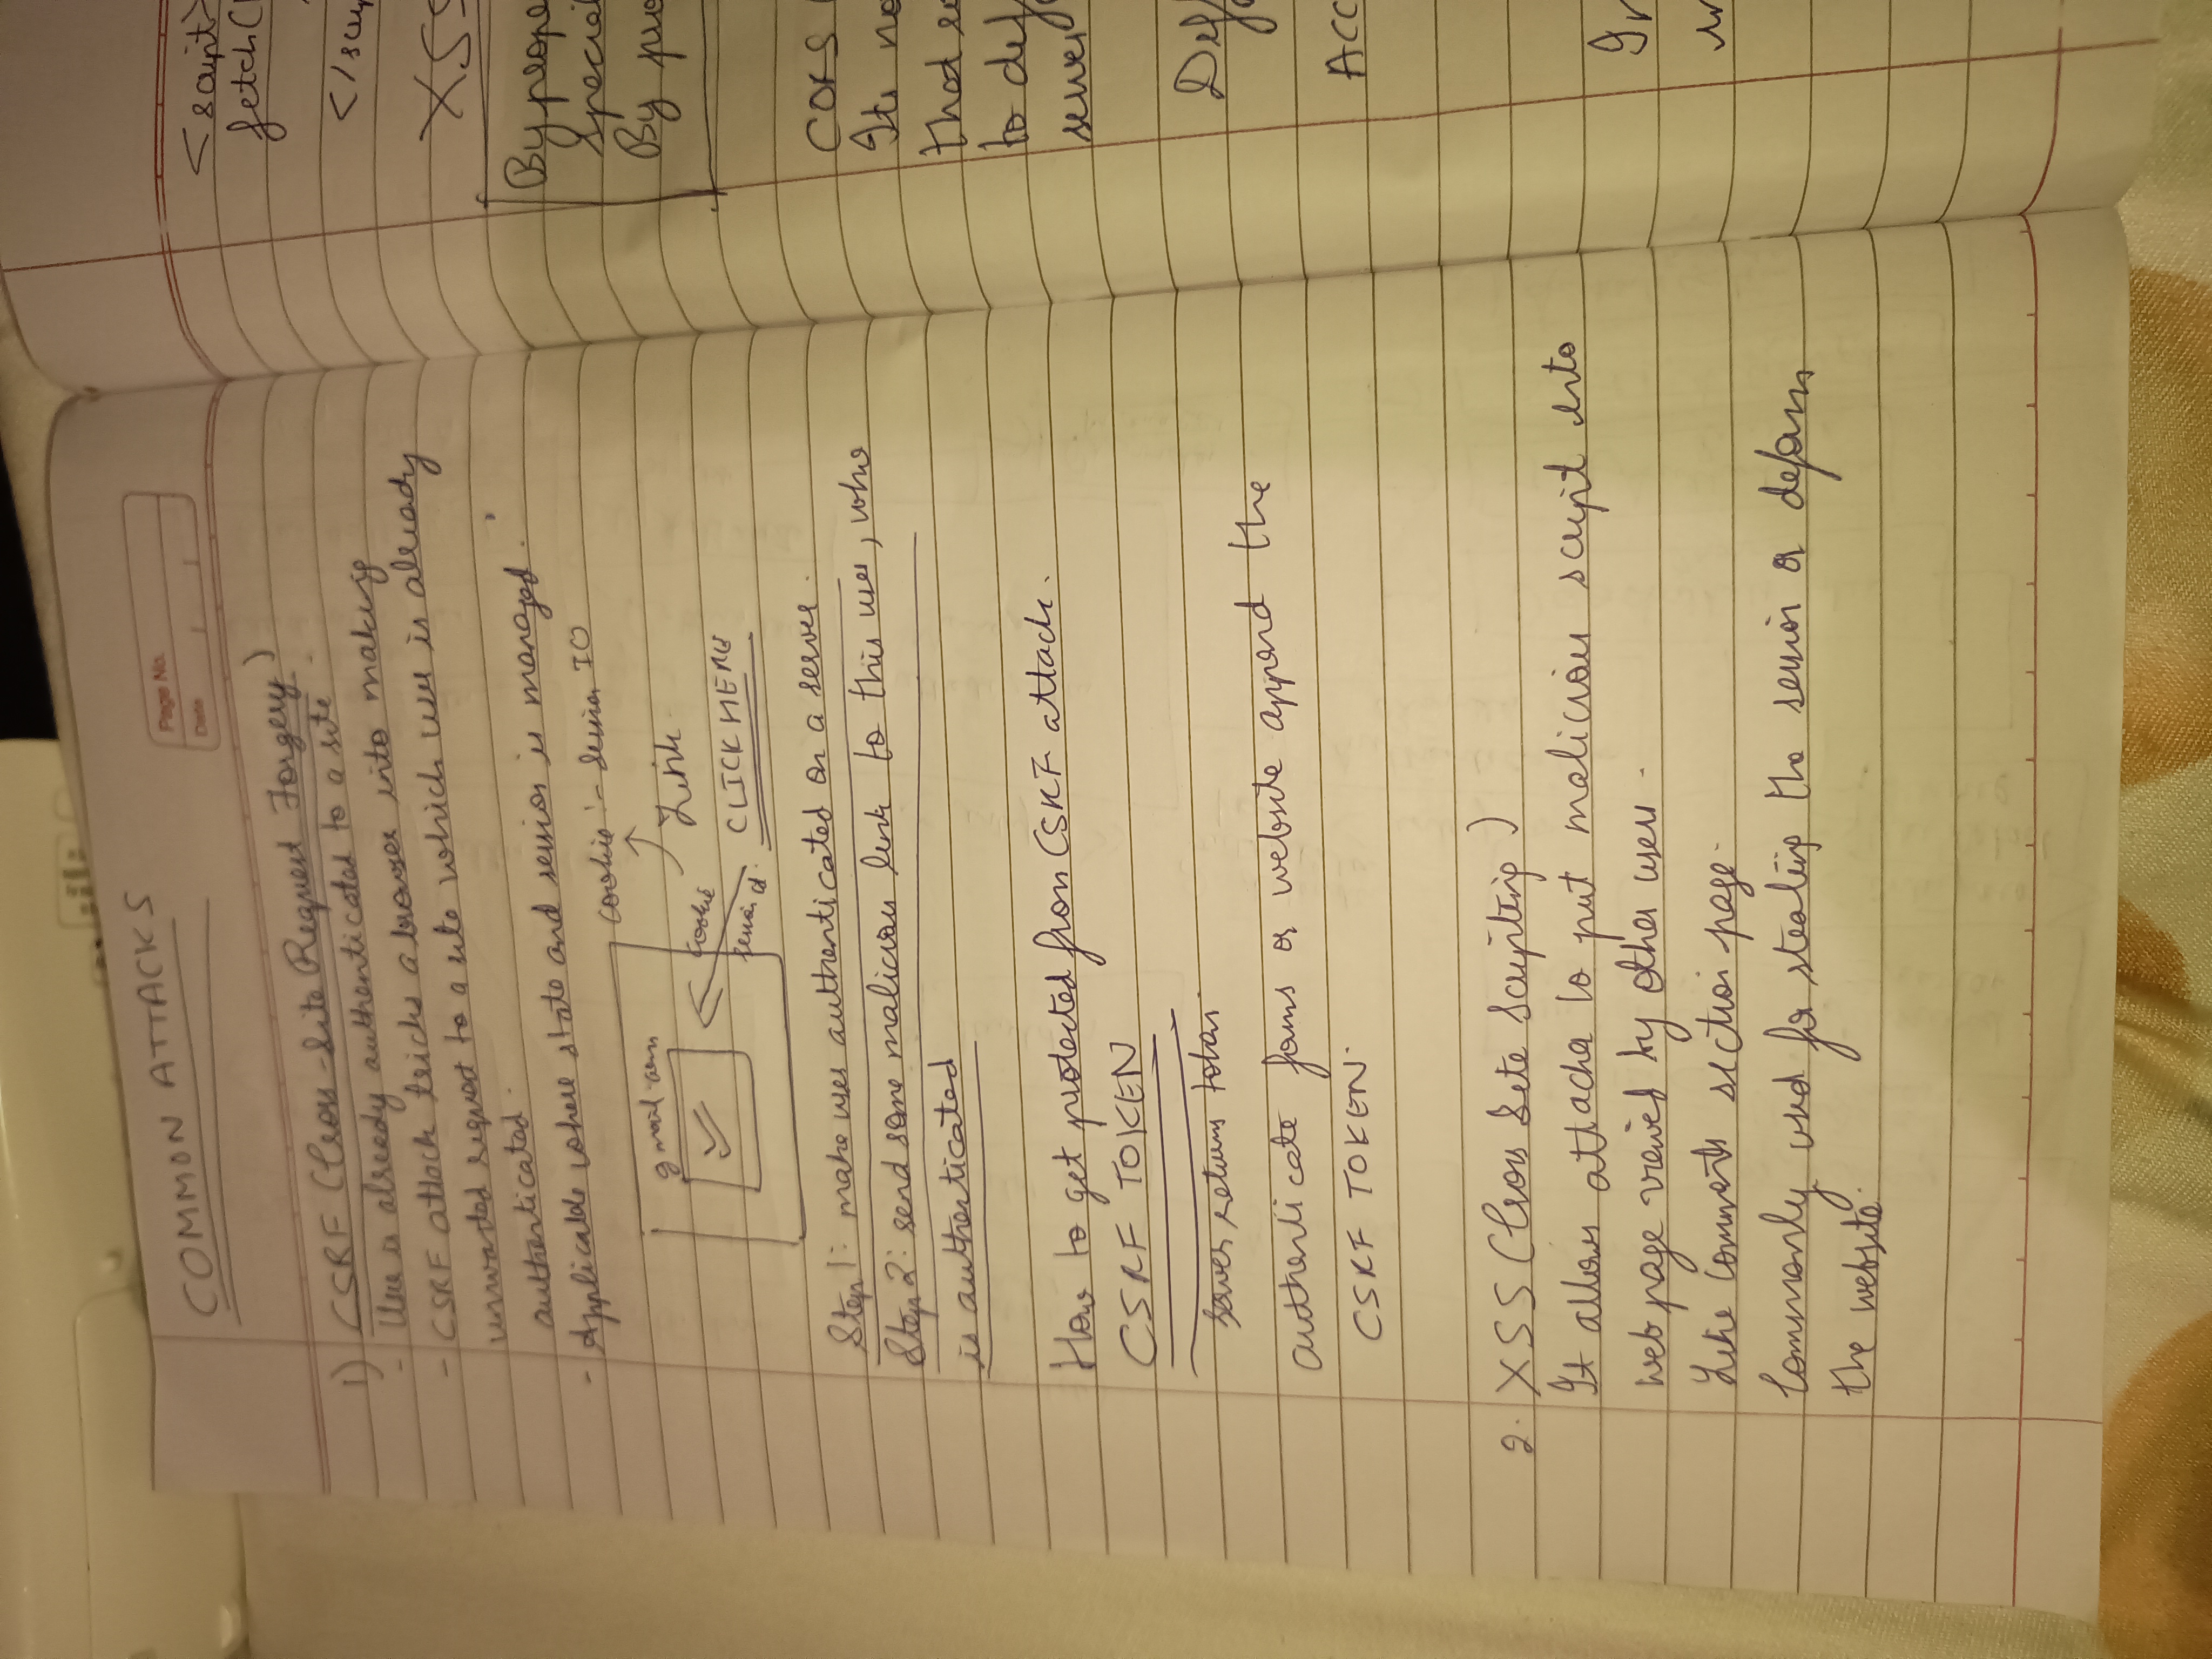 COMMON ATTACKS
Page No.
Date
1) CSRF (Cross-Site Request Forgery)
- User is already authenticated to a site.
- CSRF attack tricks a browser into making
unwanted request to a site which user is already
authenticated.
- Applicable where state and session is managed.
cookie :- Session ID
gmail.com
Link
cookie
session id.
CLICK HERE
Step 1: make user authenticated on a server.
Step 2: send some malicious link to this user, who
is authenticated
How to get protected from CSRF attack.
CSRF TOKEN
server returns token.
authenticate forms or website append the
CSRF TOKEN.
2. XSS (Cross Site Scripting)
It allows attacker to put malicious script into
web page viewed by other users.
Like comments section page.
Commonly used for stealing the session or defam
the website.
<script>
fetch(
</scrip
XSS
By prope
special
By pro
CORS
Its no
that
to def
server
Def
ACC
In